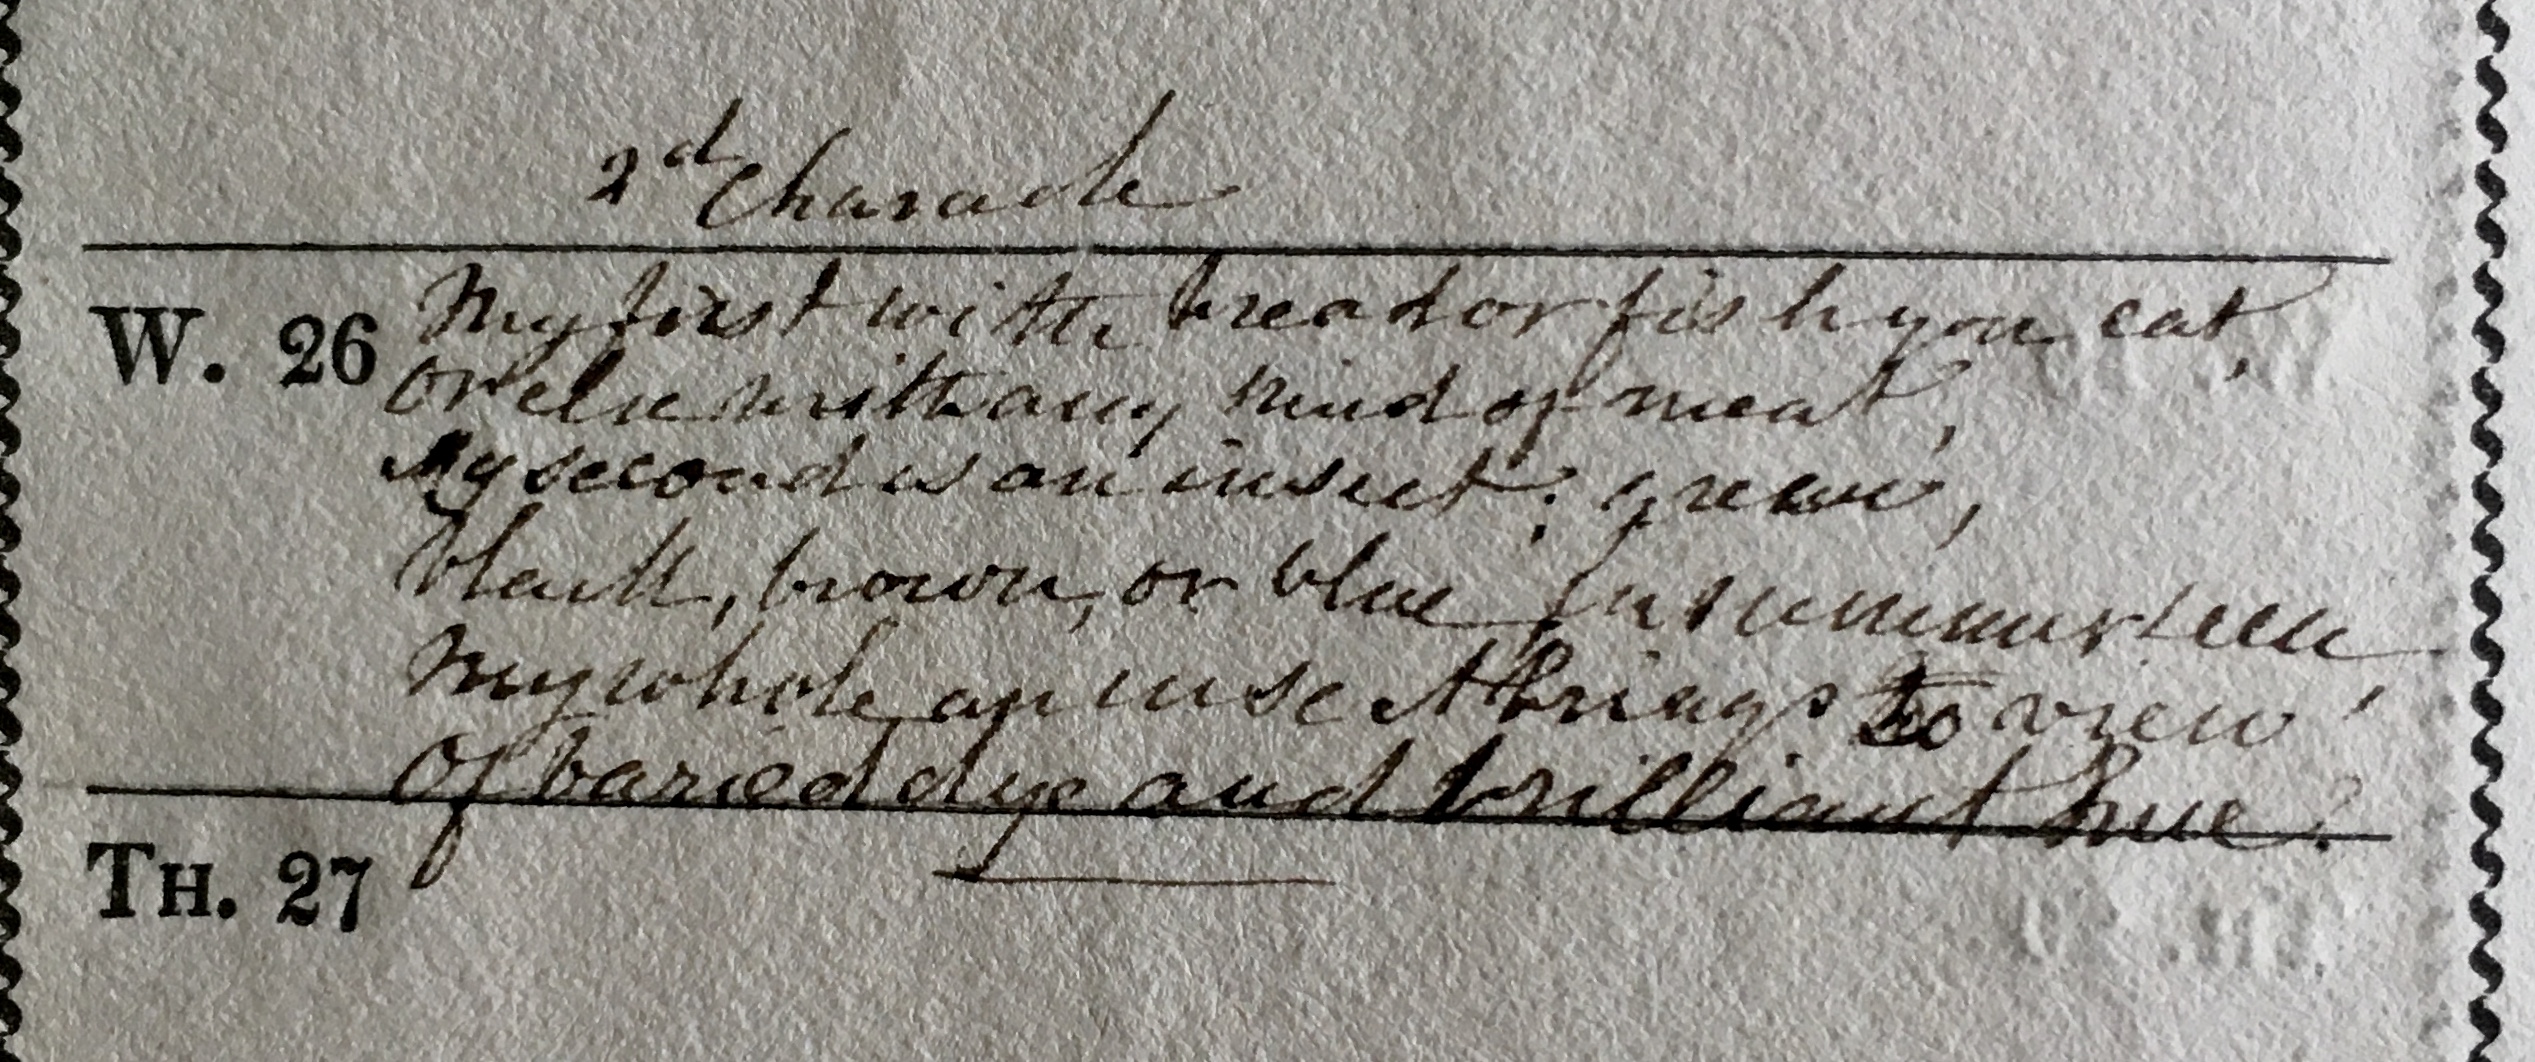 2d Charade
W. 26 My first with bread or fish you eat,
Or else with any kind of meat,
My second is an insect; green,
black, brown, or blue In summer seen,
My whole an insect brings to view
Of varied dye and brilliant hue?
TH. 27